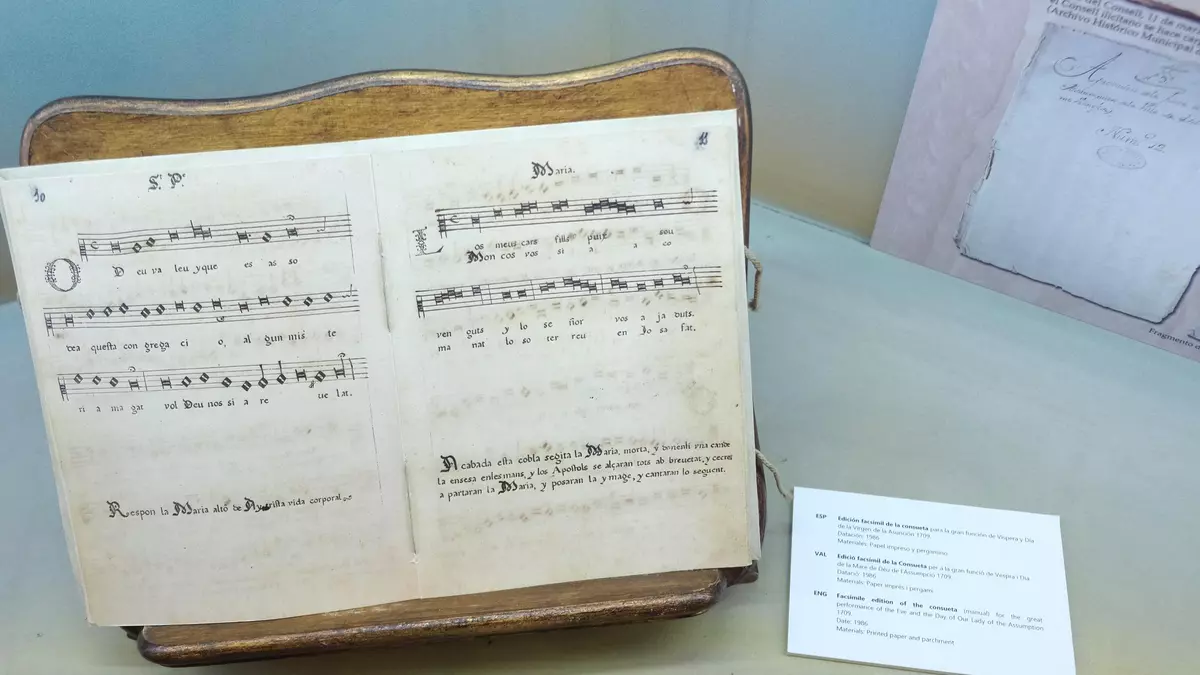 30
S.t P.e
O Deu va leu yque es as so
dea questa con grega ci o, al gun mis te
ri a ma gat vol Deu nos si a re ue lat.
Respon la Maria altò de Ay trista vida corporal
Maria.
Los meus cars fills puix sou
Mon cos vos si a a co
ven guts y lo se ñor vos a ja duts.
ma nat lo so ter reu en Io sa fat.
Acabada esta cobla segita la Maria, morta, y donenli vna cande
la ensesa enlesmans, y los Apostols se alçaran tots ab breuetat, y cerces
a partaran la Maria, y posaran la ymage, y cantaran lo seguent.
del Consell, 11 de
el Consell ilicitano se hace
(Archivo Histórico Municipal
Num.o 12
Fragmento
ESP Edición facsímil de la consueta para la gran función de Víspera y Día
de la Virgen de la Asunción 1709.
Datación: 1986
Materiales: Papel impreso y pergamino.
VAL Edició facsímil de la Consueta per a la gran funció de Vespra i Dia
de la Mare de Déu de l'Assumpció 1709.
Datació: 1986
Materials: Paper imprés i pergamí.
ENG Facsimile edition of the consueta (manual) for the great
performance of the Eve and the Day of Our Lady of the Assumption
1709.
Date: 1986
Materials: Printed paper and parchment